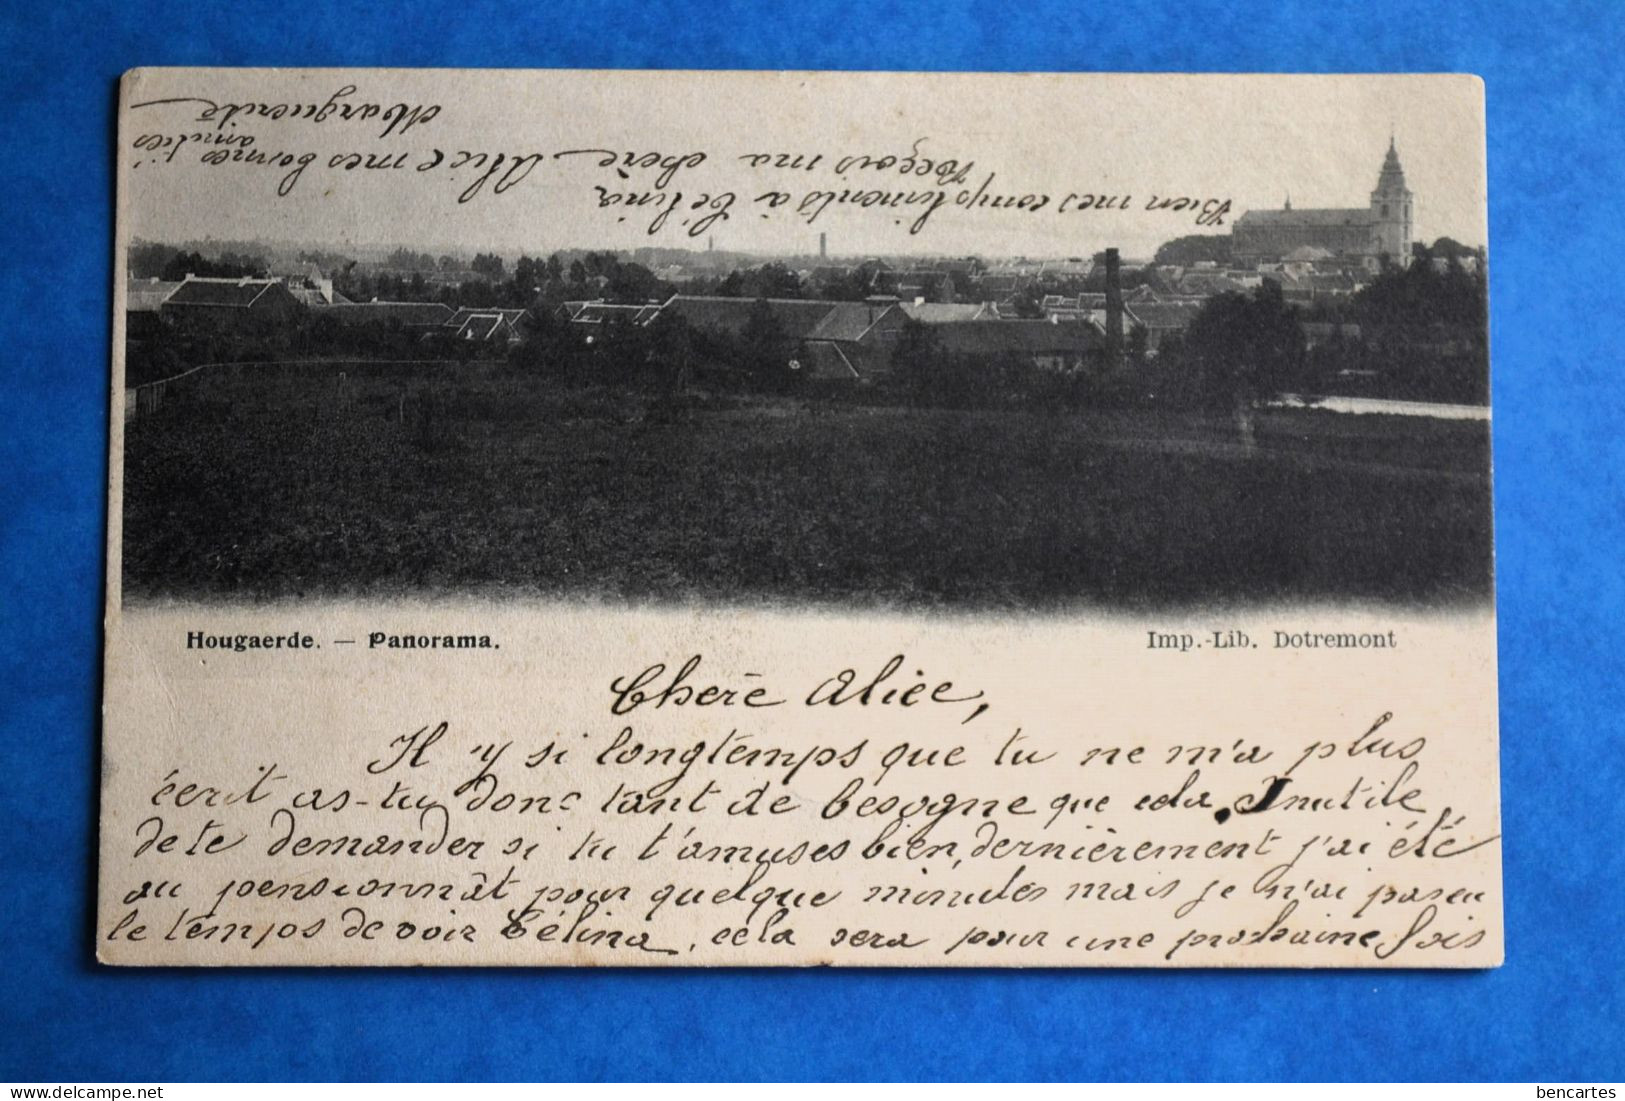 Hougaerde. — Panorama.
Imp.-Lib. Dotremont
Chère Alice,
Il y si longtemps que tu ne m'a plus
écrit as-tu donc tant de besogne que cela. Inutile
de te demander si tu t'amuses bien, dernièrement j'ai été
au pensionnât pour quelque minutes mais je n'ai pas eu
le temps de voir Célina, cela sera pour une prochaine fois
Bien mes compliments à Célina
Reçois ma chère Alice mes bonnes amitiés
Marguerite
delcampe.net
bencartes